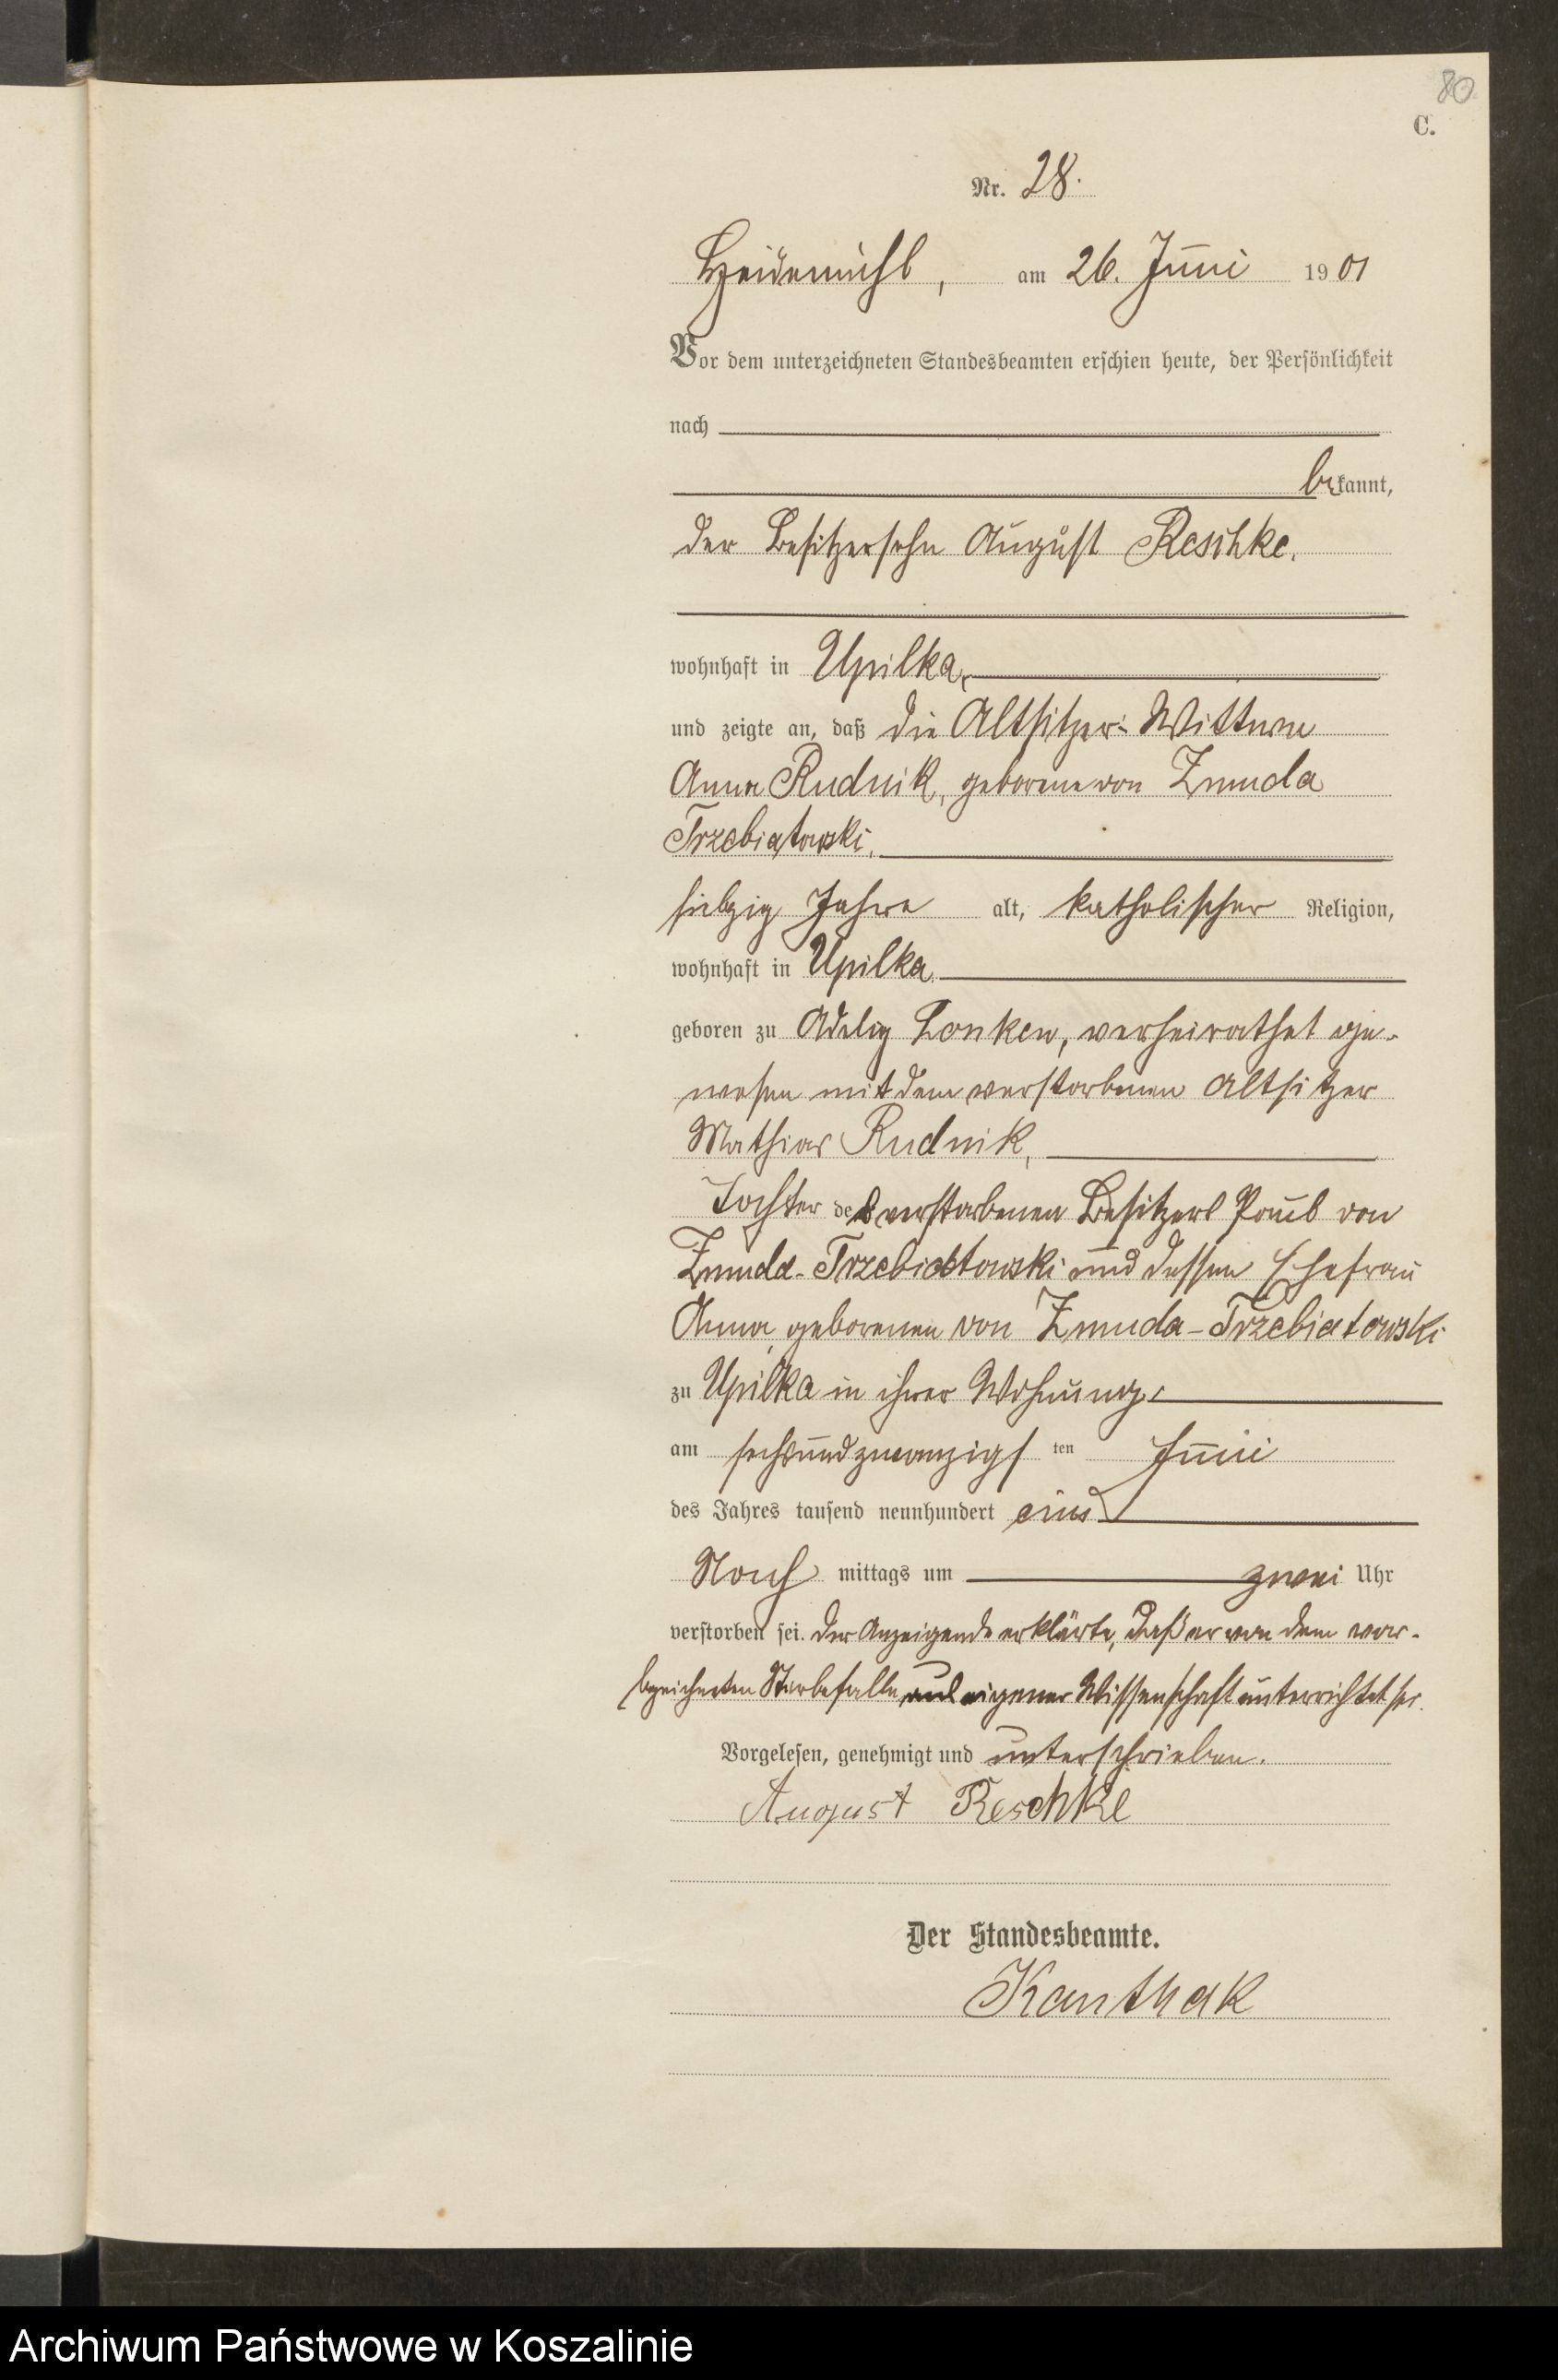 80
C.
Nr. 28.
Heidemühl, am 26. Juni 1901
Vor dem unterzeichneten Standesbeamten erschien heute, der Persönlichkeit
nach
bekannt,
der Besitzersohn August Reschke,
wohnhaft in Upilka,
und zeigte an, daß die Altsitzer-Wittwe
Anna Rudnik, geborene von Zmuda
Trzebiatowski,
siebzig Jahre alt, katholischer Religion,
wohnhaft in Upilka
geboren zu Adelig Lonken, verheirathet ge-
wesen mit dem verstorbenen Altsitzer
Mathias Rudnik,
Tochter des verstorbenen Besitzers von
Zmuda-Trzebiatowski und dessen Ehefrau
Anna, geborenen von Zmuda-Trzebiatowski
zu Upilka in ihrer Wohnung,
am sechsundzwanzigsten Juni
des Jahres tausend neunhundert eins
Nach mittags um zwei Uhr
verstorben sei. Der Anzeigende erklärte, daß er von dem vor-
bezeichneten Sterbefalle aus eigener Wissenschaft unterrichtet sei.
Vorgelesen, genehmigt und unterschrieben.
August Reschke
Der Standesbeamte.
Kanthak
Archiwum Państwowe w Koszalinie